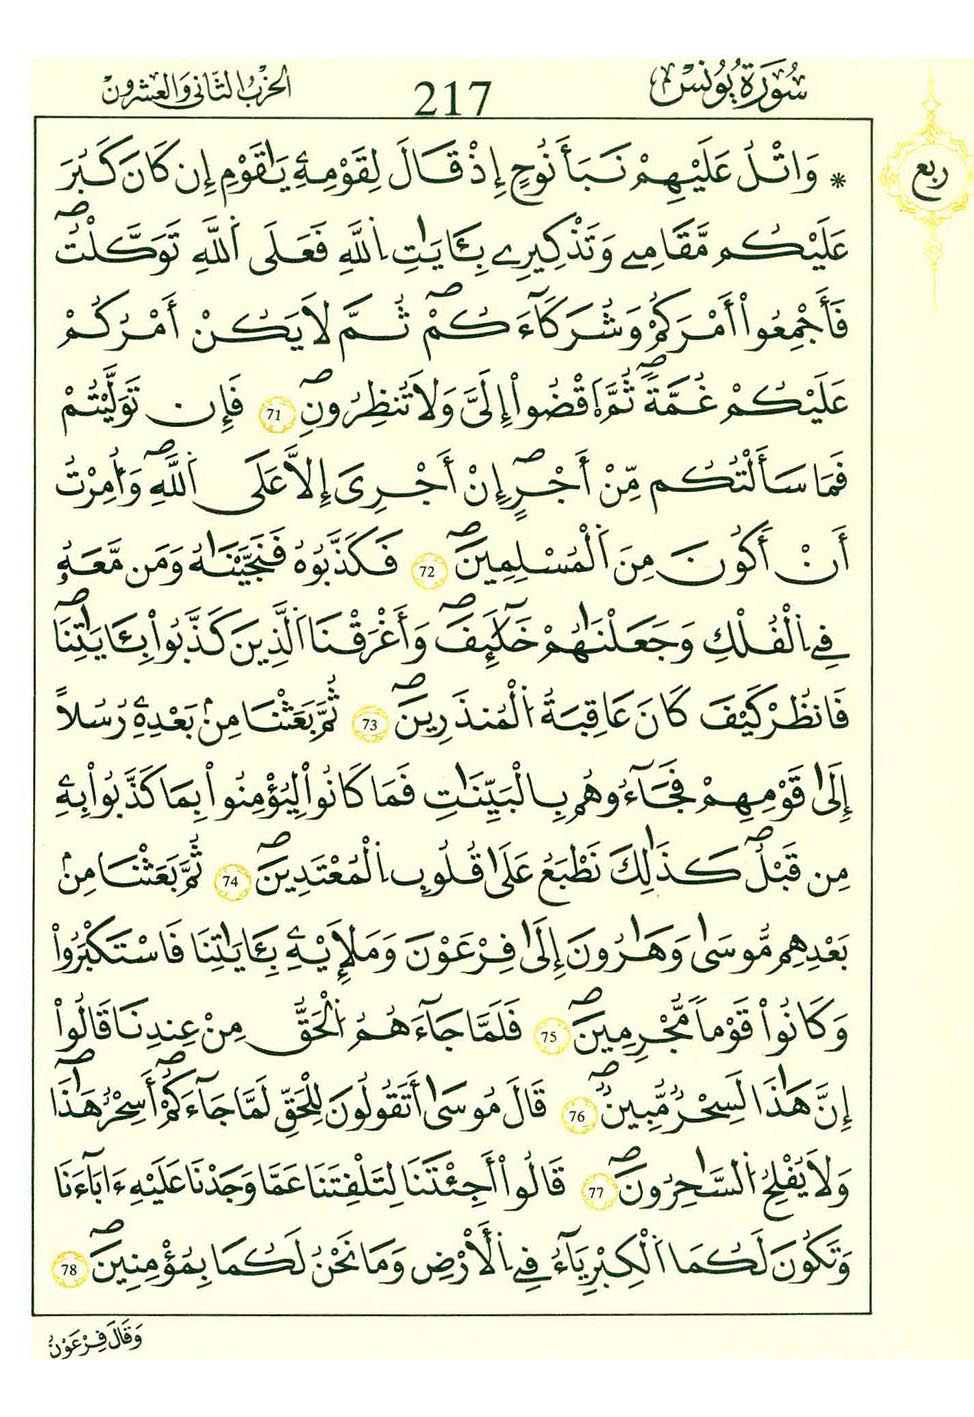 سُورَةُ يُونُسَ 217 الحزب الثاني والعشرون
ربع
* وَاتْلُ عَلَيْهِمْ نَبَأَ نُوحٍ إِذْ قَالَ لِقَوْمِهِۦ يَٰقَوْمِ إِن كَانَ كَبُرَ
عَلَيْكُم مَّقَامِے وَتَذْكِيرِے بِـَٔايَٰتِ اِ۬للَّهِ فَعَلَى اَ۬للَّهِ تَوَكَّلْتُۖ
فَأَجْمِعُواْ أَمْرَكُمْ وَشُرَكَآءَكُمْۖ ثُمَّ لَا يَكُنْ أَمْرُكُمْ
عَلَيْكُمْ غُمَّةٗۖ ثُمَّ اَ۪قْضُواْ إِلَيَّ وَلَا تُنظِرُونِۖ 71 فَإِن تَوَلَّيْتُمْ
فَمَا سَأَلْتُكُم مِّنْ أَجْرٍۖ إِنْ أَجْرِيَ إِلَّا عَلَى اَ۬للَّهِۖ وَأُمِرْتُ
أَنْ أَكُونَ مِنَ اَ۬لْمُسْلِمِينَۖ 72 فَكَذَّبُوهُ فَنَجَّيْنَٰهُ وَمَن مَّعَهُۥ
فِے اِ۬لْفُلْكِ وَجَعَلْنَٰهُمْ خَلَٰٓئِفَۖ وَأَغْرَقْنَا اَ۬لَّذِينَ كَذَّبُواْ بِـَٔايَٰتِنَاۖ
فَانظُرْ كَيْفَ كَانَ عَاقِبَةُ اُ۬لْمُنذَرِينَۖ 73 ثُمَّ بَعَثْنَا مِنۢ بَعْدِهِۦ رُسُلاً
إِلَىٰ قَوْمِهِمْ فَجَآءُوهُم بِالْبَيِّنَٰتِ فَمَا كَانُواْ لِيُؤْمِنُواْ بِمَا كَذَّبُواْ بِهِۦ
مِن قَبْلُۖ كَذَٰلِكَ نَطْبَعُ عَلَىٰ قُلُوبِ اِ۬لْمُعْتَدِينَۖ 74 ثُمَّ بَعَثْنَا مِنۢ
بَعْدِهِم مُّوسَىٰ وَهَٰرُونَ إِلَىٰ فِرْعَوْنَ وَمَلَإِيْهِۦ بِـَٔايَٰتِنَا فَاسْتَكْبَرُواْ
وَكَانُواْ قَوْماً مُّجْرِمِينَۖ 75 فَلَمَّا جَآءَهُمُ اُ۬لْحَقُّ مِنْ عِندِنَا قَالُواْ
إِنَّ هَٰذَا لَسِحْرٌ مُّبِينٌۖ 76 قَالَ مُوسَىٰ أَتَقُولُونَ لِلْحَقِّ لَمَّا جَآءَكُمْۖ أَسِحْرٌ هَٰذَاۖ
وَلَا يُفْلِحُ اُ۬لسَّٰحِرُونَۖ 77 قَالُواْ أَجِئْتَنَا لِتَلْفِتَنَا عَمَّا وَجَدْنَا عَلَيْهِ ءَابَآءَنَا
وَتَكُونَ لَكُمَا اَ۬لْكِبْرِيَآءُ فِے اِ۬لْأَرْضِ وَمَا نَحْنُ لَكُمَا بِمُؤْمِنِينَۖ 78
وَقَالَ فِرْعَوْنُ